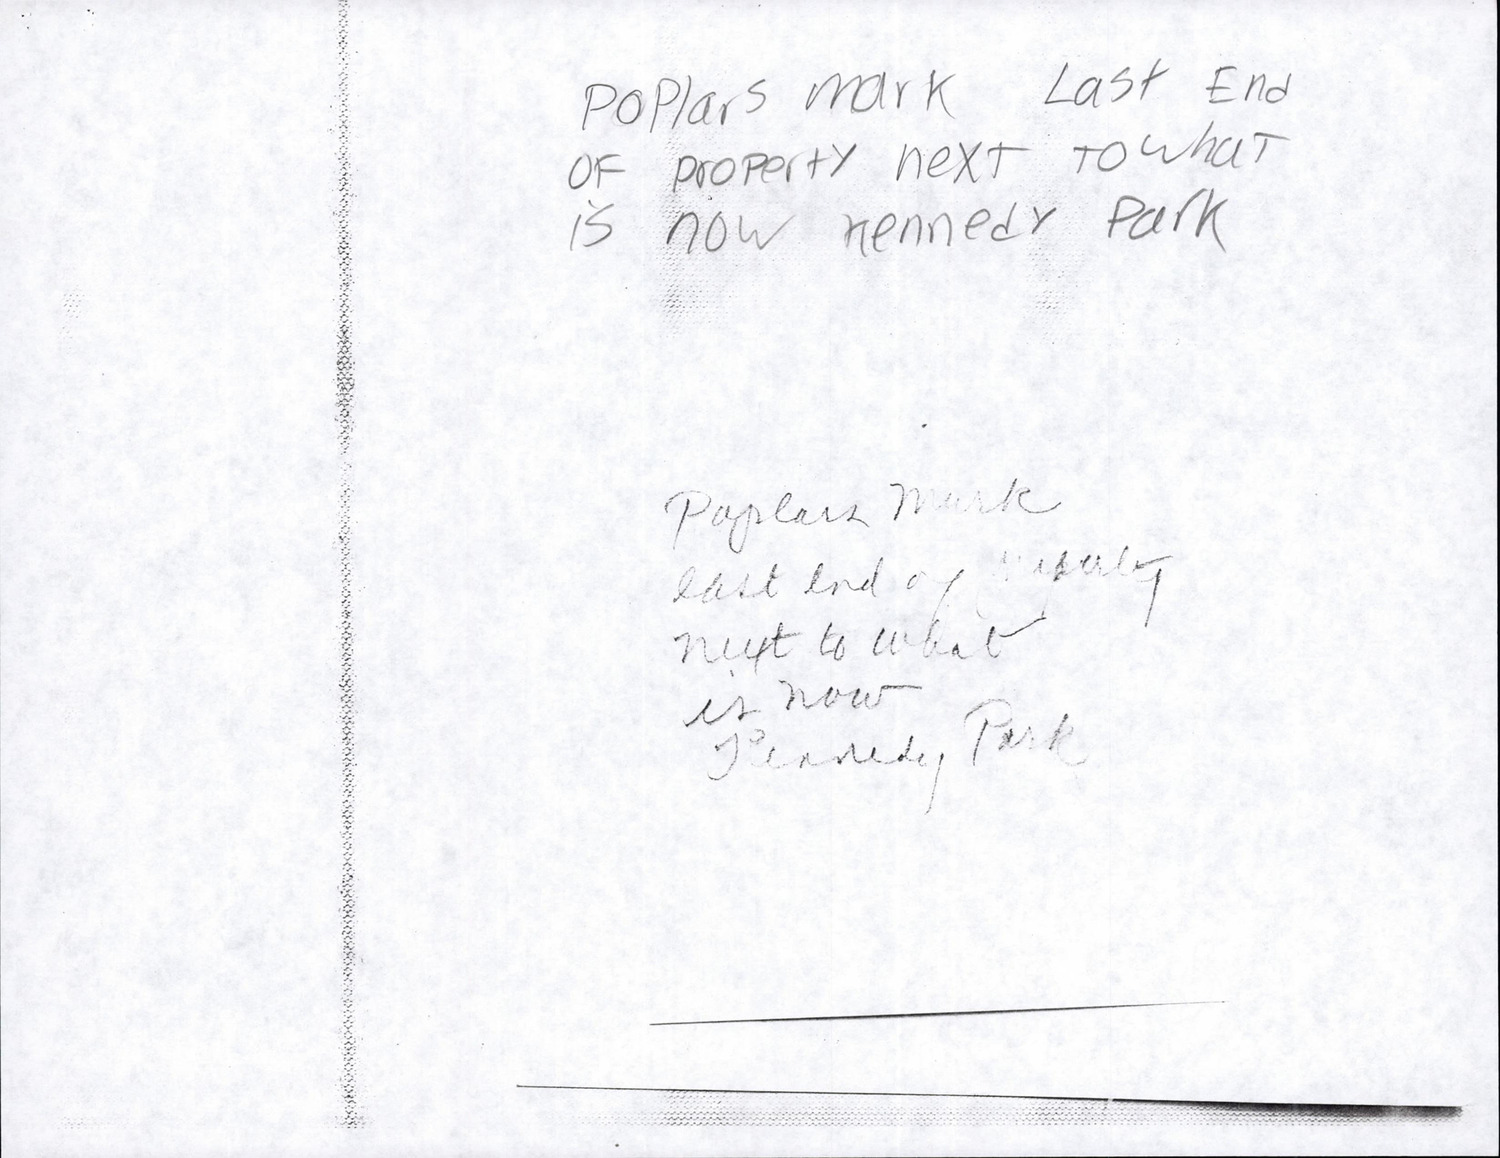 Poplars mark Last End
OF property next to what
is now Kennedy Park
Poplars Mark
east end of property
next to what
is now
Kennedy Park